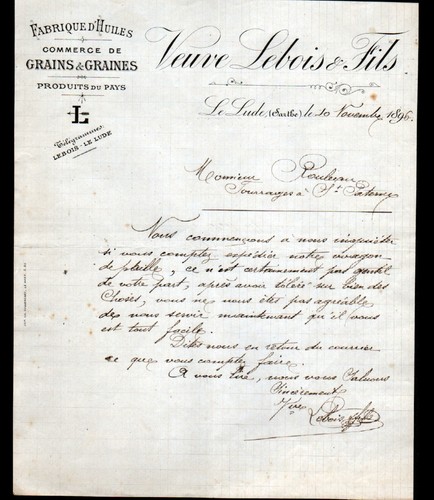 FABRIQUE D'HUILES
COMMERCE DE
GRAINS & GRAINES
PRODUITS DU PAYS
L
Télégrammes
LEBOIS - LE LUDE
Veuve Lebois & Fils
Le Lude, (Sarthe) le 20 Novembre 1896
Monsieur Rouleau
Fourrages à St Paterne
Nous commençons à nous inquiéter
si vous comptez expédier notre wagon
de paille, ce n'est certainement pas gentil
de votre part, après avoir sur bien des
choses, vous ne nous êtes pas agréable
de nous servir maintenant qu'il vous
est tout facile.
Dites nous en retour du courrier
ce que vous comptez faire.
A vous lire, nous vous saluons
sincèrement
Vve Lebois & fils